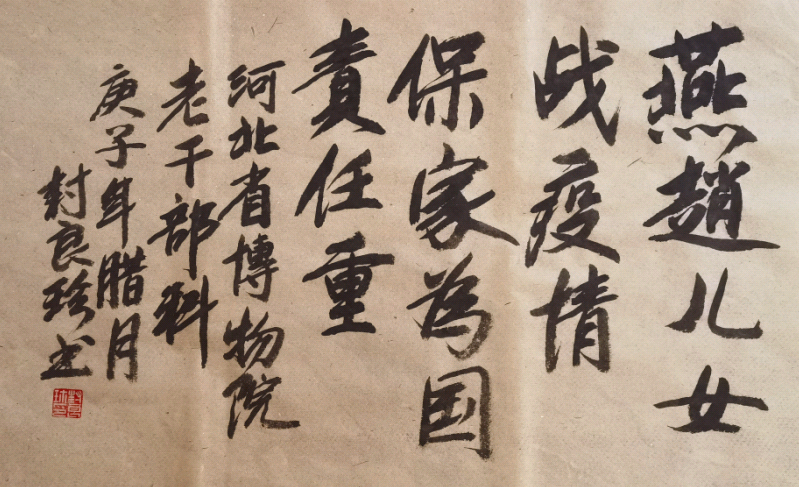 燕趙儿女
战疫情
保家為国
責任重
河北省博物院
老干部科
庚子年腊月
封良珍书